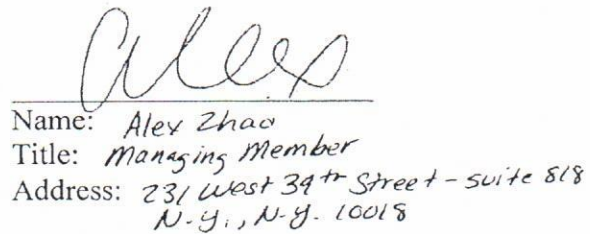 Alex
Name: Alex Zhao
Title: Managing Member
Address: 231 West 39th Street - suite 818
N.Y., N.Y. 10018